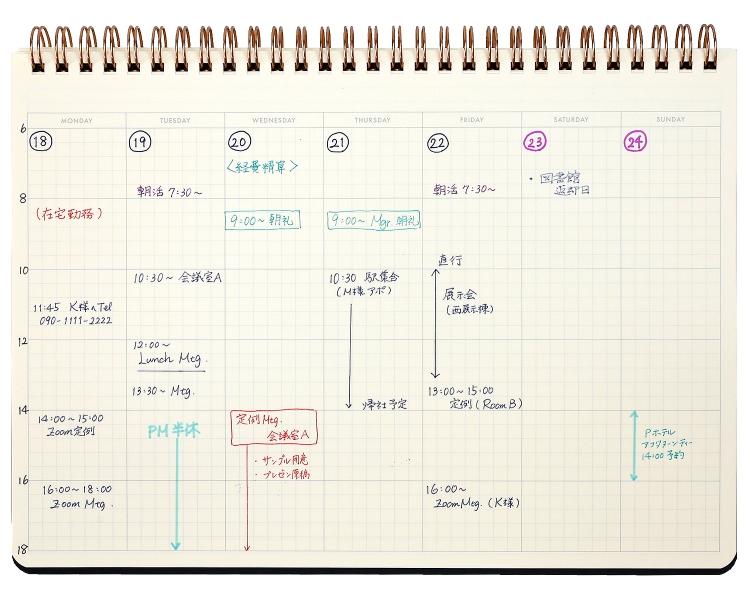 MONDAY TUESDAY WEDNESDAY THURSDAY FRIDAY SATURDAY SUNDAY
6
8
10
12
14
16
18
18
(在宅勤務)
11:45 K様へTel
090-1111-2222
14:00~15:00
Zoom定例
16:00~18:00
Zoom Mtg.
19
朝活 7:30~
10:30~ 会議室A
12:00~
Lunch Mtg.
13:30~ Mtg.
PM半休
20
<経費精算>
9:00~朝礼
定例Mtg.
会議室A
・サンプル用意
・プレゼン原稿
21
9:00~ Mgr.朝礼
10:30 駅集合
(M様アポ)
帰社予定
22
朝活 7:30~
直行
展示会
(西展示棟)
13:00~15:00
定例(Room B)
16:00~
Zoom Mtg. (K様)
23
・図書館
返却日
24
Pホテル
アフタヌーンティー
14:00予約